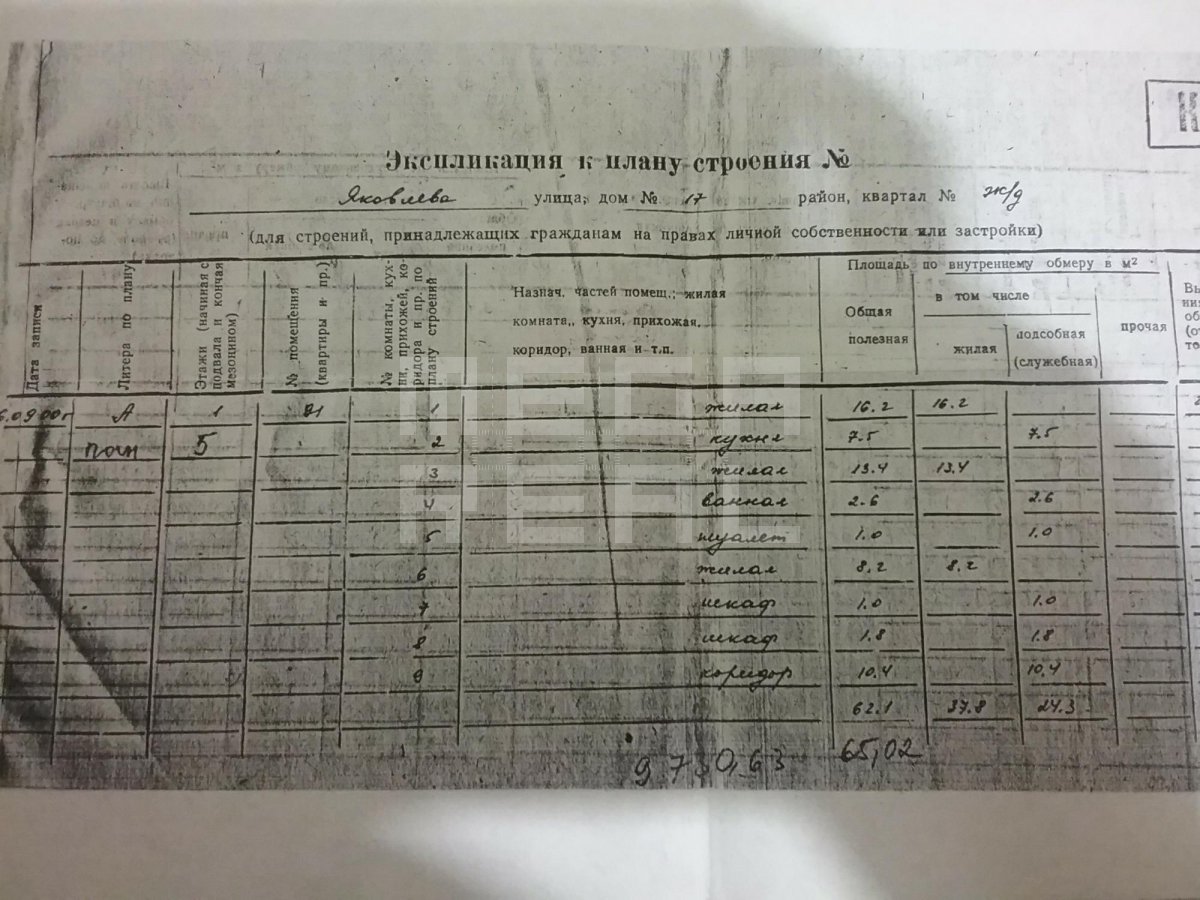 Экспликация к плану строения №
Яковлева улица, дом № 17 район, квартал № ж/д
(для строений, принадлежащих гражданам на правах личной собственности или застройки)
Дата записи
Литера по плану
Этажи (начиная с подвала и кончая мезонином)
№ помещения (квартиры и пр.)
№ комнаты, кухни, прихожей, коридора и пр. по плану строений
Назнач. частей помещ.; жилая
комната,, кухня, прихожая,
коридор, ванная и т.п.
Площадь по внутреннему обмеру в м²
Общая
полезная
в том числе
жилая
подсобная
(служебная)
прочая
А 1 1 жилая 16.2 16.2
5 2 кухня 7.5 7.5
3 жилая 13.4 13.4
4 ванная 2.6 2.6
5 туалет 1.0 1.0
6 жилая 8.2 8.2
7 шкаф 1.0 1.0
8 шкаф 1.8 1.8
9 коридор 10.4 10.4
62.1 37.8 24.3
65,02
ДЕПО
РЕАЛ